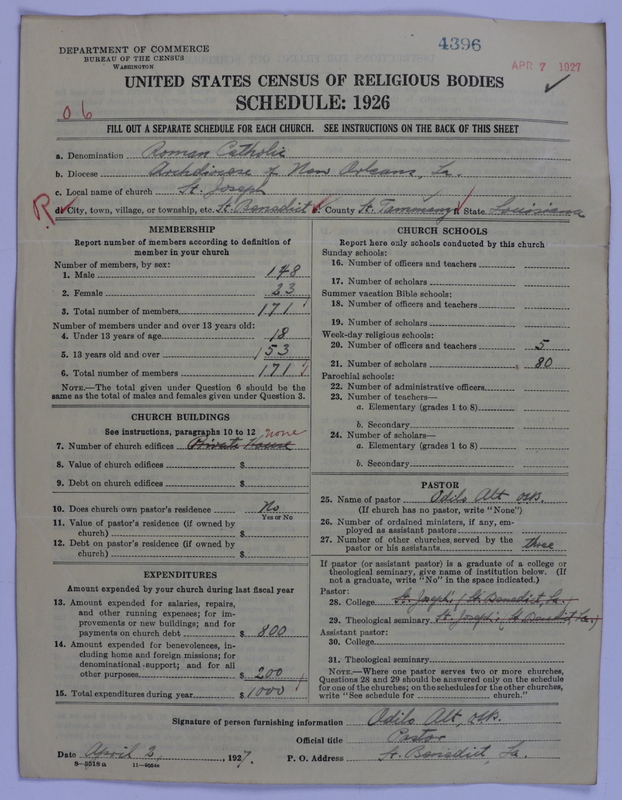 4396
DEPARTMENT OF COMMERCE
BUREAU OF THE CENSUS
WASHINGTON
APR 7 1927
UNITED STATES CENSUS OF RELIGIOUS BODIES
SCHEDULE: 1926
06
FILL OUT A SEPARATE SCHEDULE FOR EACH CHURCH. SEE INSTRUCTIONS ON THE BACK OF THIS SHEET
a. Denomination Roman Catholic
b. Diocese Archdiocese of New Orleans, La.
c. Local name of church St. Joseph
R d. City, town, village, or township, etc. St. Benedict e. County St. Tammany f. State Louisiana
MEMBERSHIP
Report number of members according to definition of
member in your church
Number of members, by sex:
1. Male 148
2. Female 23
3. Total number of members 171
Number of members under and over 13 years old:
4. Under 13 years of age 18
5. 13 years old and over 153
6. Total number of members 171
NOTE.—The total given under Question 6 should be the
same as the total of males and females given under Question 3.
CHURCH BUILDINGS
See instructions, paragraphs 10 to 12 none
7. Number of church edifices Private House
8. Value of church edifices $
9. Debt on church edifices $
10. Does church own pastor's residence No
Yes or No
11. Value of pastor's residence (if owned by
church) $
12. Debt on pastor's residence (if owned by
church) $
EXPENDITURES
Amount expended by your church during last fiscal year
13. Amount expended for salaries, repairs,
and other running expenses; for im-
provements or new buildings; and for
payments on church debt $ 800
14. Amount expended for benevolences, in-
cluding home and foreign missions; for
denominational support; and for all
other purposes $ 200
15. Total expenditures during year $ 1000
CHURCH SCHOOLS
Report here only schools conducted by this church
Sunday schools:
16. Number of officers and teachers
17. Number of scholars
Summer vacation Bible schools:
18. Number of officers and teachers
19. Number of scholars
Week-day religious schools:
20. Number of officers and teachers 5
21. Number of scholars 80
Parochial schools:
22. Number of administrative officers
23. Number of teachers—
a. Elementary (grades 1 to 8)
b. Secondary
24. Number of scholars—
a. Elementary (grades 1 to 8)
b. Secondary
PASTOR
25. Name of pastor Odilo Alt OSB.
(If church has no pastor, write "None")
26. Number of ordained ministers, if any, em-
ployed as assistant pastors
27. Number of other churches served by the
pastor or his assistants three
If pastor (or assistant pastor) is a graduate of a college or
theological seminary, give name of institution below. (If
not a graduate, write "No" in the space indicated.)
Pastor:
28. College St. Joseph, (St. Benedict, La.)
29. Theological seminary St. Joseph; (St. Benedict, La.)
Assistant pastor:
30. College
31. Theological seminary
NOTE.—Where one pastor serves two or more churches,
Questions 28 and 29 should be answered only on the schedule
for one of the churches; on the schedules for the other churches,
write "See schedule for church."
Signature of person furnishing information Odilo Alt, OSB.
Official title Pastor
Date April 2, 1927. P. O. Address St. Benedict, La.